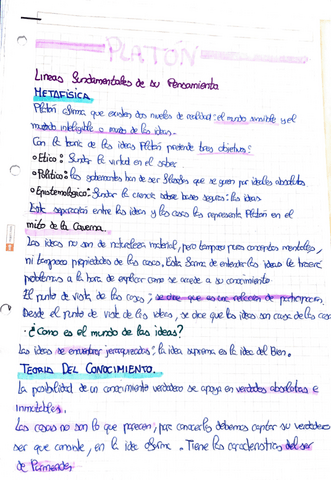 PLATÓN
Lineas fundamentales de su Pensamiento
METAFÍSICA
Platón afirma que existen dos niveles de realidad: el mundo sensible y el
mundo inteligible o mundo de las ideas.
Con la teoría de las ideas Platón pretende tres objetivos:
Ético: fundar la virtud en el saber.
Político: los gobernantes han de ser filósofos que se guien por ideales absolutos
Epistemológico: fundar la ciencia sobre bases seguras: las ideas
Esta separación entre las ideas y las cosas las representa Platón en el
mito de la Caverna.
Las ideas no son de naturaleza material, pero tampoco puros conceptos mentales,
ni tampoco propiedades de las cosas. Esta forma de entender las ideas le traerá
problemas a la hora de explicar como se accede a su conocimiento.
El punto de vista de las cosas; se dice que es una relación de participación.
Desde el punto de vista de las ideas, se dice que las ideas son causa de las cosas
· ¿Como es el mundo de las ideas?
Las ideas se encuentran jerarquizadas, la idea suprema es la idea del Bien.
TEORIA DEL CONOCIMIENTO.
La posibilidad de un conocimiento verdadero se apoya en verdades absolutas e
inmutables.
Las cosas no son lo que parecen, para conocerlas debemos captar su verdadero
ser que consiste, en la idea afirma. Tiene las características del ser
de Parmenides